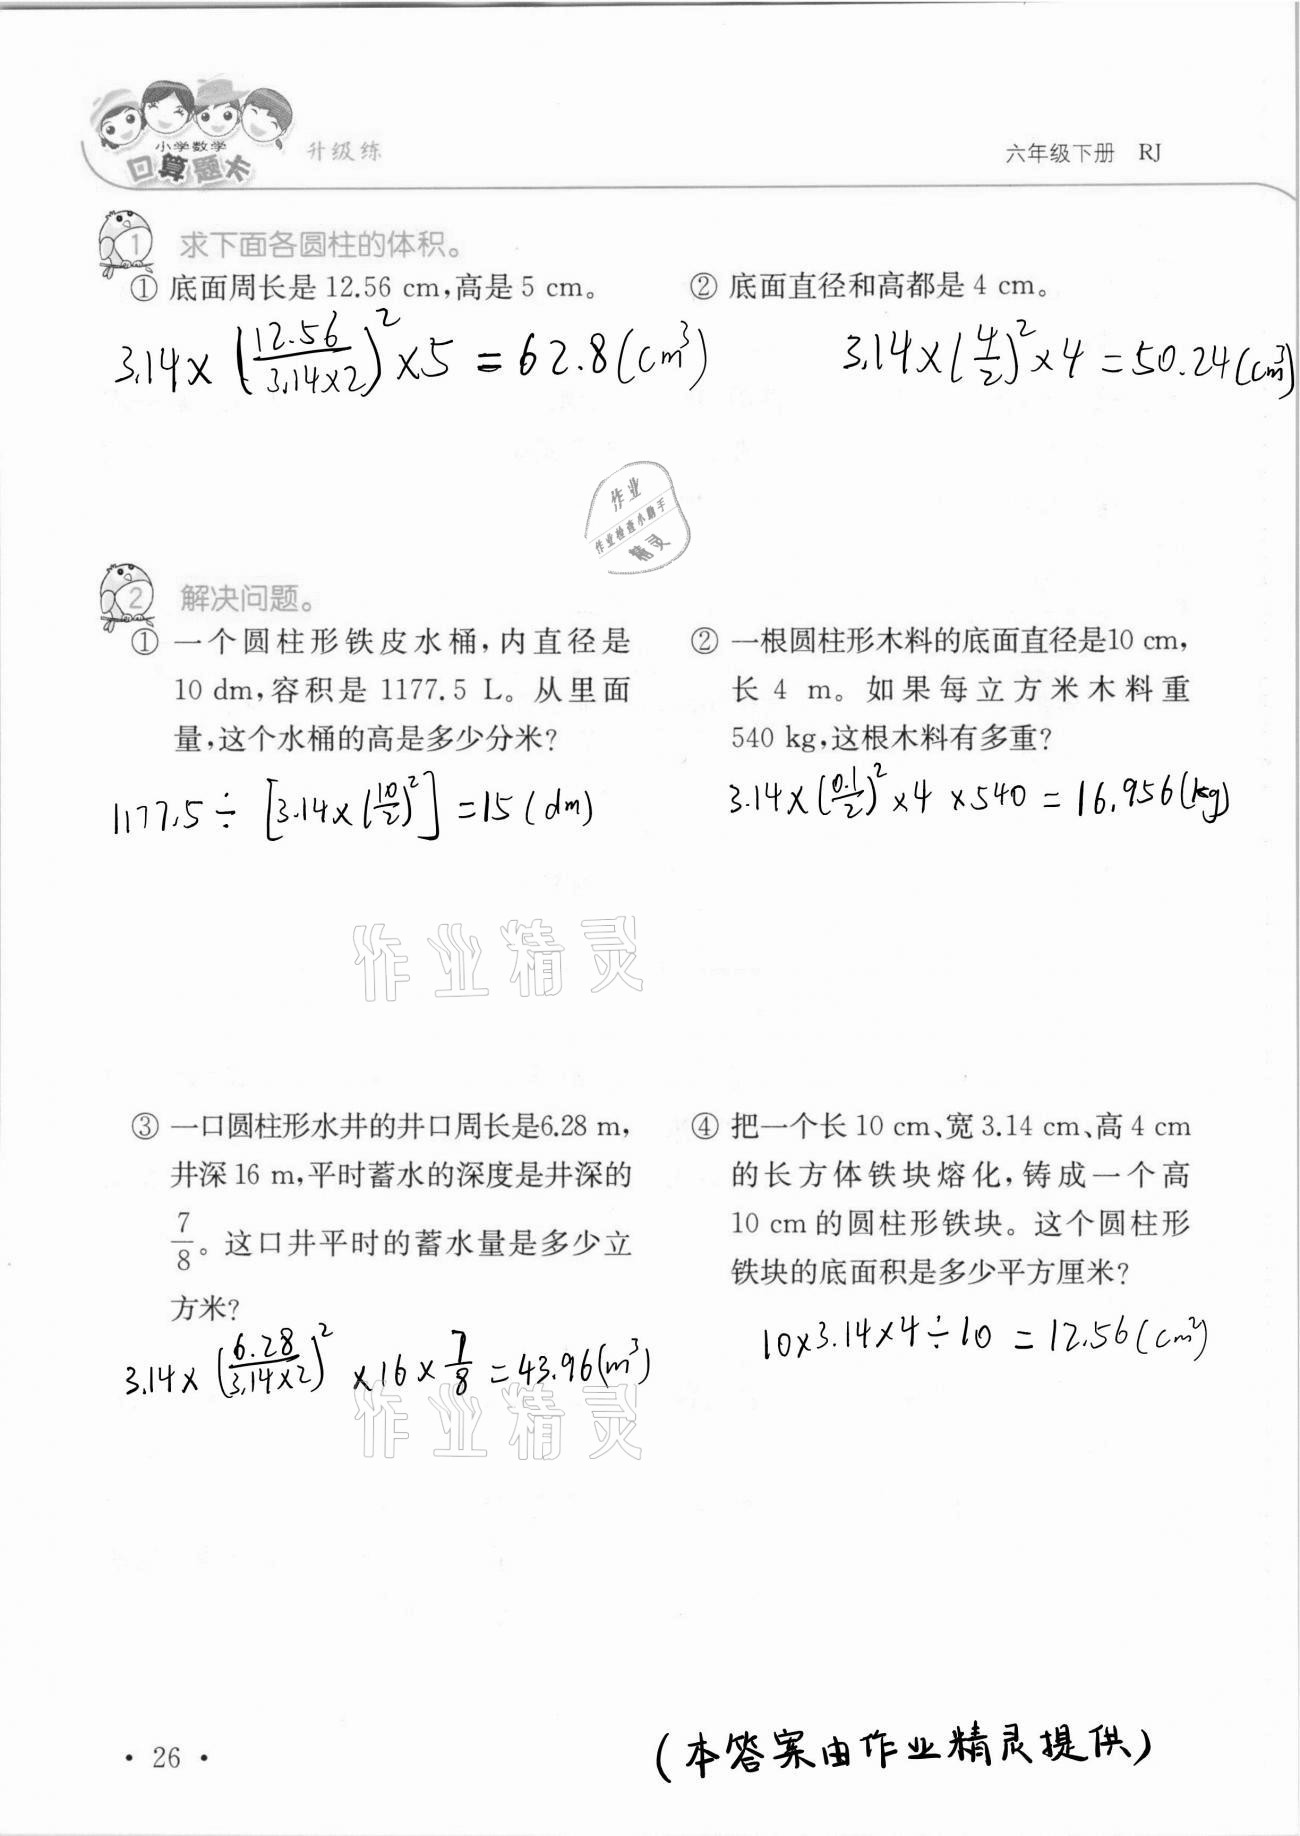 小学数学
口算题卡
升级练
六年级下册 RJ
1 求下面各圆柱的体积。
① 底面周长是 12.56 cm,高是 5 cm。
3.14×(12.56/3.14×2)²×5=62.8(cm³)
② 底面直径和高都是 4 cm。
3.14×(4/2)²×4=50.24(cm³)
作业
作业检查小助手
精灵
2 解决问题。
① 一个圆柱形铁皮水桶,内直径是
10 dm,容积是 1177.5 L。从里面
量,这个水桶的高是多少分米?
1177.5÷[3.14×(10/2)²]=15(dm)
② 一根圆柱形木料的底面直径是10 cm,
长 4 m。如果每立方米木料重
540 kg,这根木料有多重?
3.14×(0.1/2)²×4×540=16.956(kg)
作业精灵
③ 一口圆柱形水井的井口周长是6.28 m,
井深 16 m,平时蓄水的深度是井深的
7/8。这口井平时的蓄水量是多少立
方米?
3.14×(6.28/3.14×2)²×16×7/8=43.96(m³)
④ 把一个长 10 cm、宽 3.14 cm、高 4 cm
的长方体铁块熔化,铸成一个高
10 cm 的圆柱形铁块。这个圆柱形
铁块的底面积是多少平方厘米?
10×3.14×4÷10=12.56(cm²)
作业精灵
· 26 ·
(本答案由作业精灵提供)